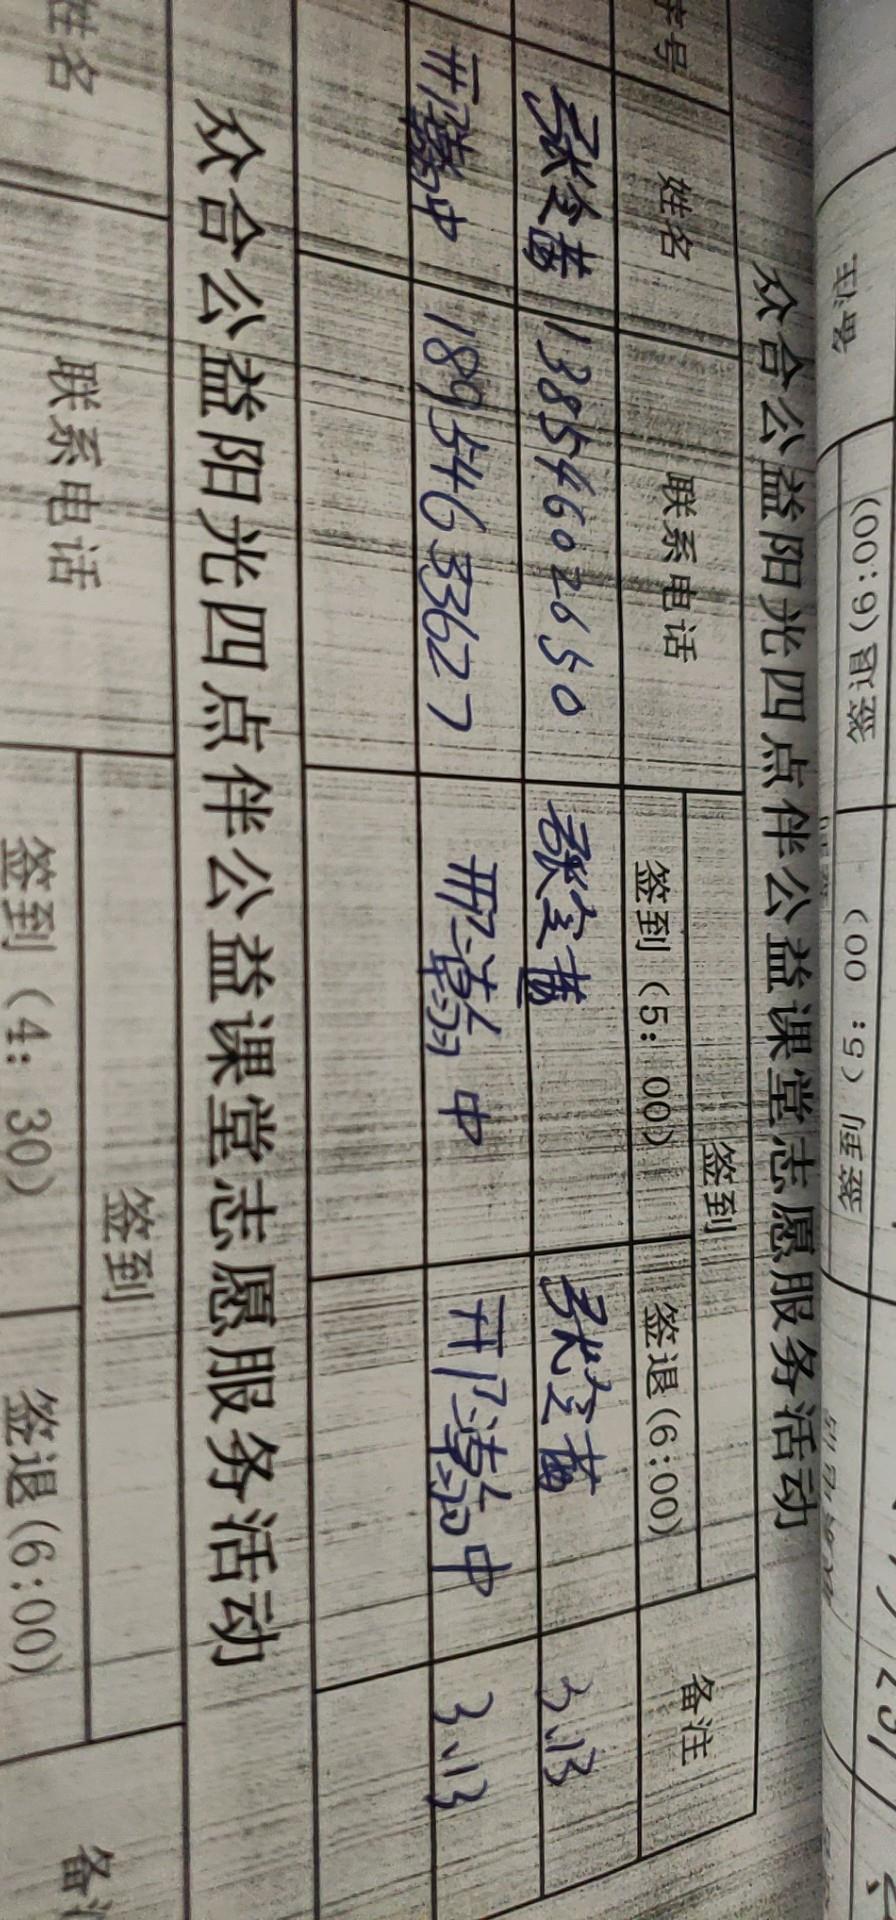 备注
签退(6:00)
签到(5:00)
众合公益阳光四点伴公益课堂志愿服务活动
序号 姓名 联系电话 签到 备注
签到(5:00) 签退(6:00)
张全苗 13854602650 张全苗 张全苗 3.13
18954633627 3.13
众合公益阳光四点伴公益课堂志愿服务活动
姓名 联系电话 签到 备注
签到(4:30) 签退(6:00)